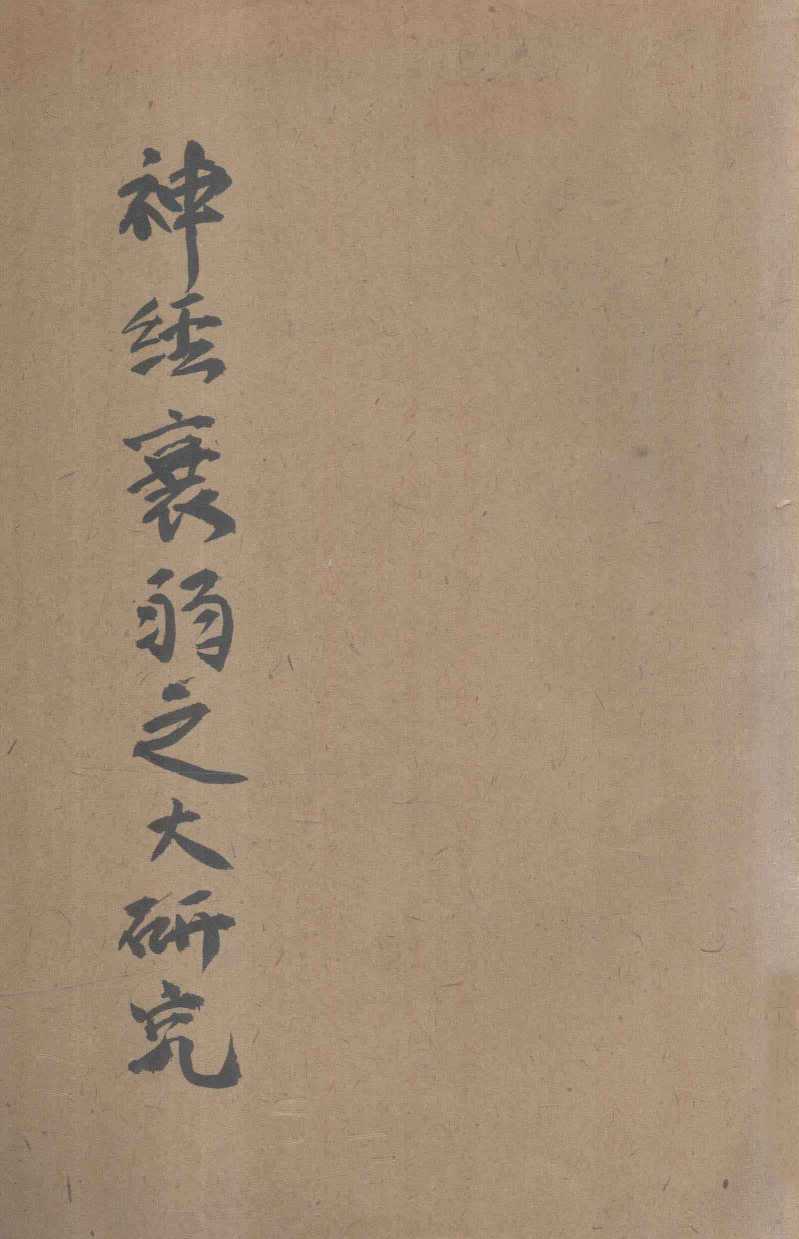 神经衰弱之大研究